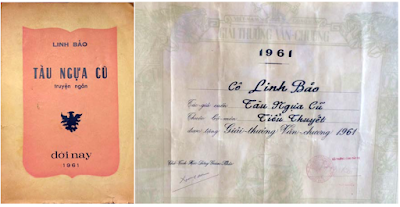 LINH BẢO
TÀU NGỰA CŨ
truyện ngắn
đời nay
1961
1961
Cô Linh Bảo
Tác-giả cuốn Tàu Ngựa Cũ
Thuộc bộ-môn Tiểu Thuyết
được tặng Giải-thưởng Văn-chương 1961